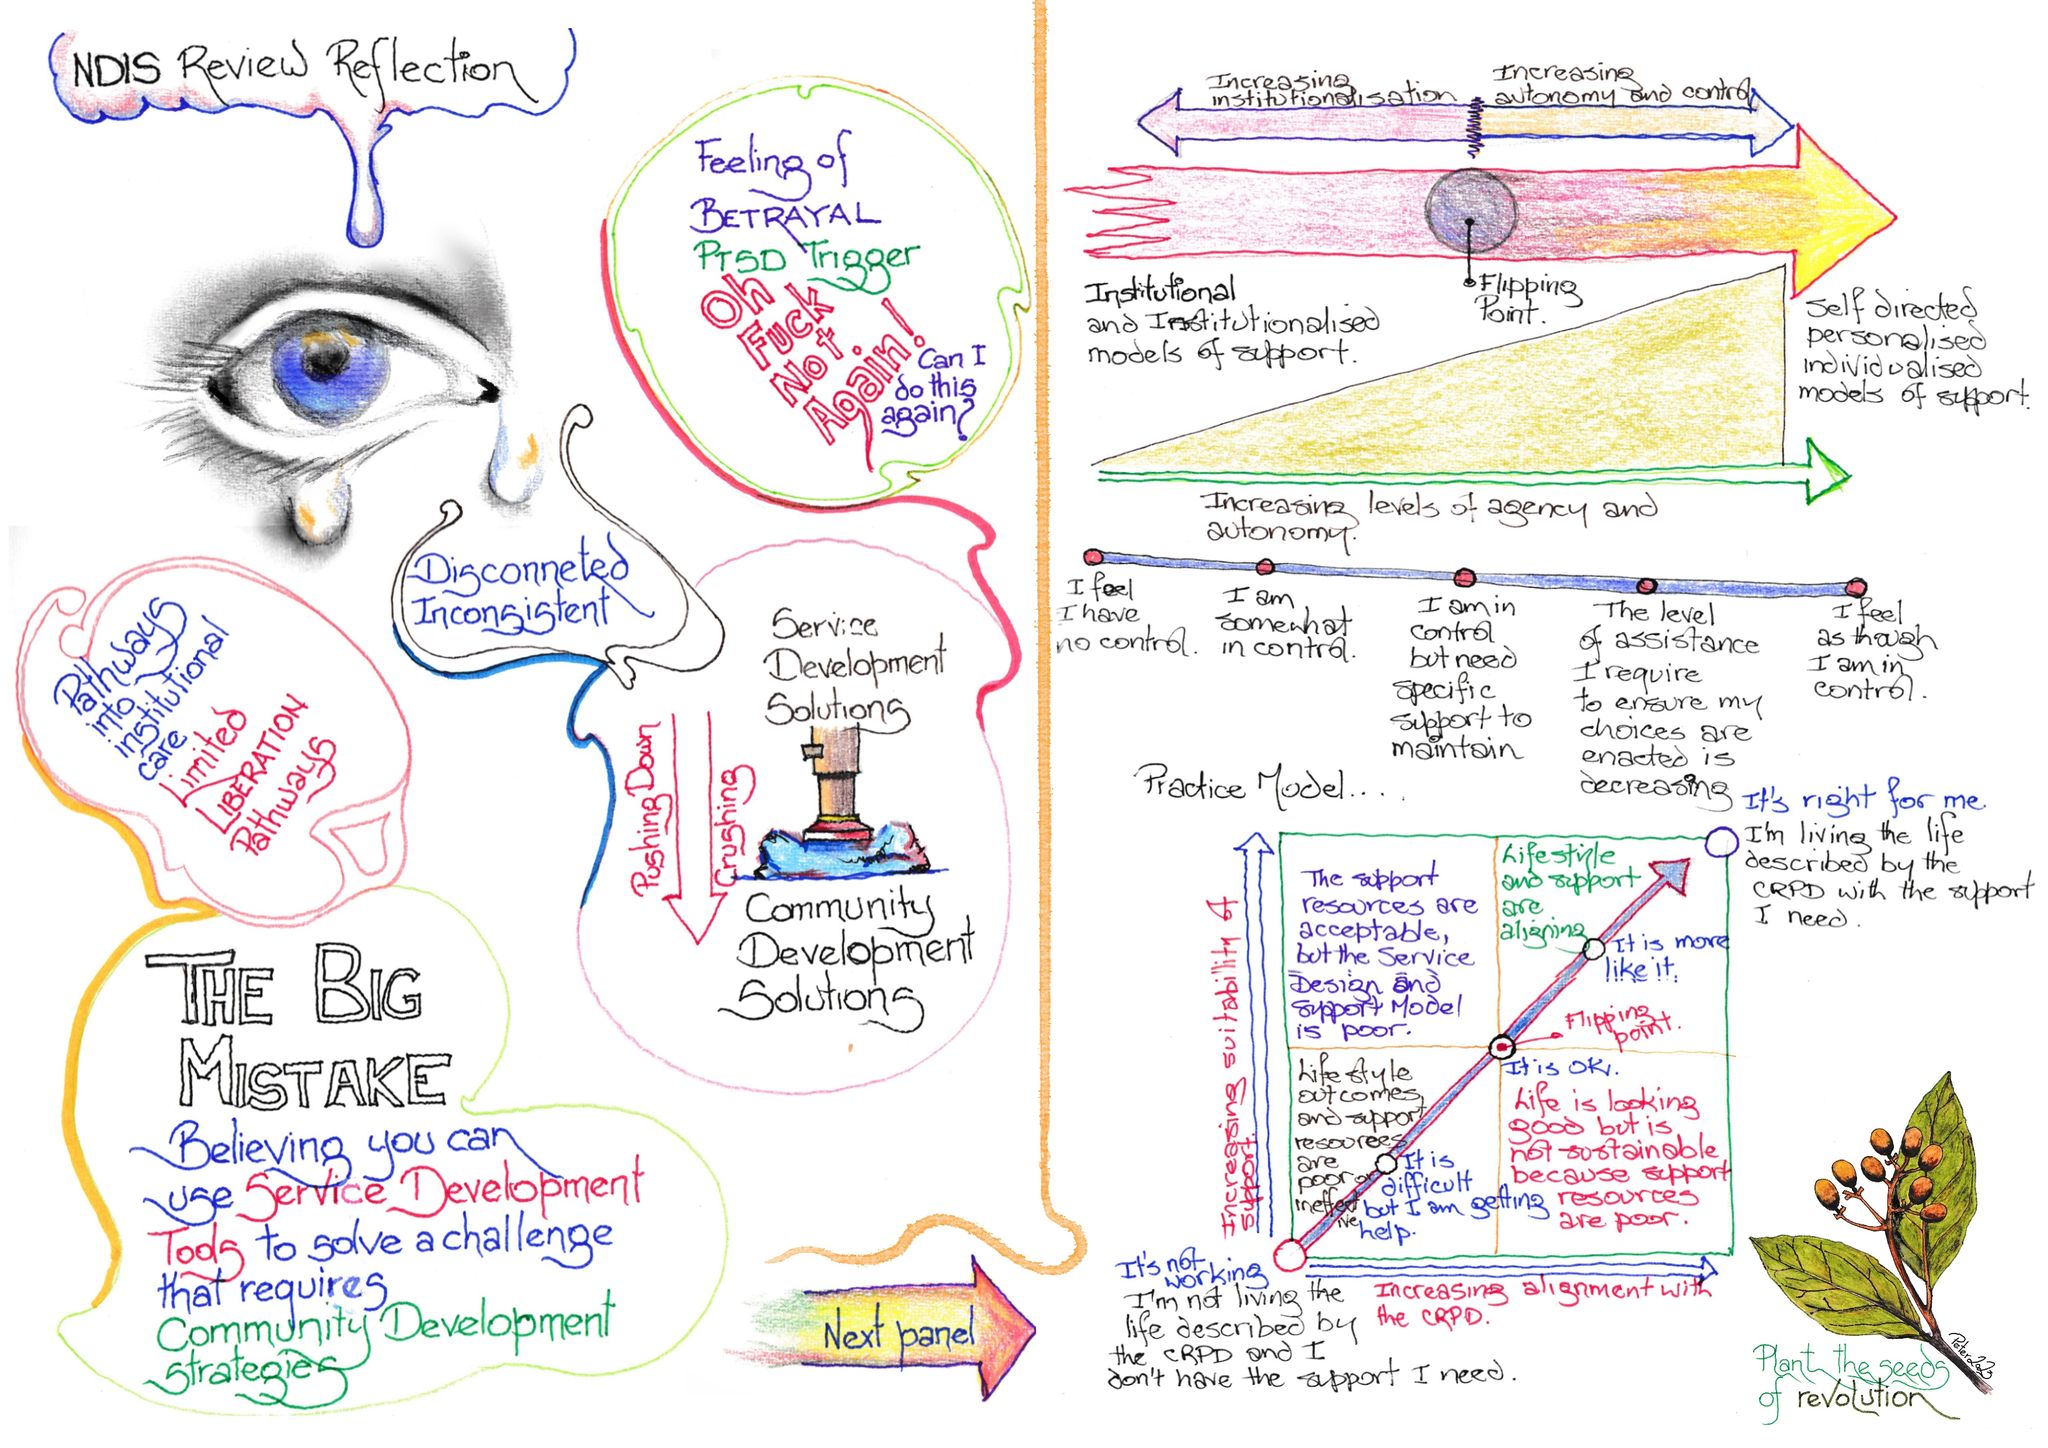 NDIS Review Reflection
Feeling of
BETRAYAL
PTSD Trigger
Oh
Fuck
Not
Again!
Can I
do this
again?
Disconneted
Inconsistent
Pathways
into
institutional
care
Limited
LIBERATION
Pathways
Service
Development
Solutions
Pushing Down
Crushing
Community
Development
Solutions
THE BIG
MISTAKE
Believing you can
use Service Development
Tools to solve a challenge
that requires
Community Development
strategies
Next panel
Increasing
institutionalisation
Increasing
autonomy and control
Flipping
Point.
Institutional
and Institutionalised
models of support.
Self directed
personalised
individualised
models of support.
Increasing levels of agency and
autonomy.
I feel
I have
no control.
I am
somewhat
in control.
I am in
control
but need
specific
support to
maintain
The level
of assistance
I require
to ensure my
choices are
enacted is
decreasing
I feel
as though
I am in
control.
Practice Model....
It's right for me
I'm living the life
described by the
CRPD with the support
I need.
Increasing suitability of
support.
The support
resources are
acceptable,
but the Service
Design and
support Model
is poor.
Lifestyle
and support
are
aligning
It is more
like it.
Flipping
point.
It is OK.
Lifestyle
outcomes
and support
resources
are
poor or
ineffect
ive
It is
difficult
but I am getting
help.
Life is looking
good but is
not sustainable
because support
resources
are poor.
It's not
working
I'm not living the
life described by
the CRPD and I
don't have the support I need.
Increasing alignment with
the CRPD.
Peter 2023
Plant the seeds
of revolution